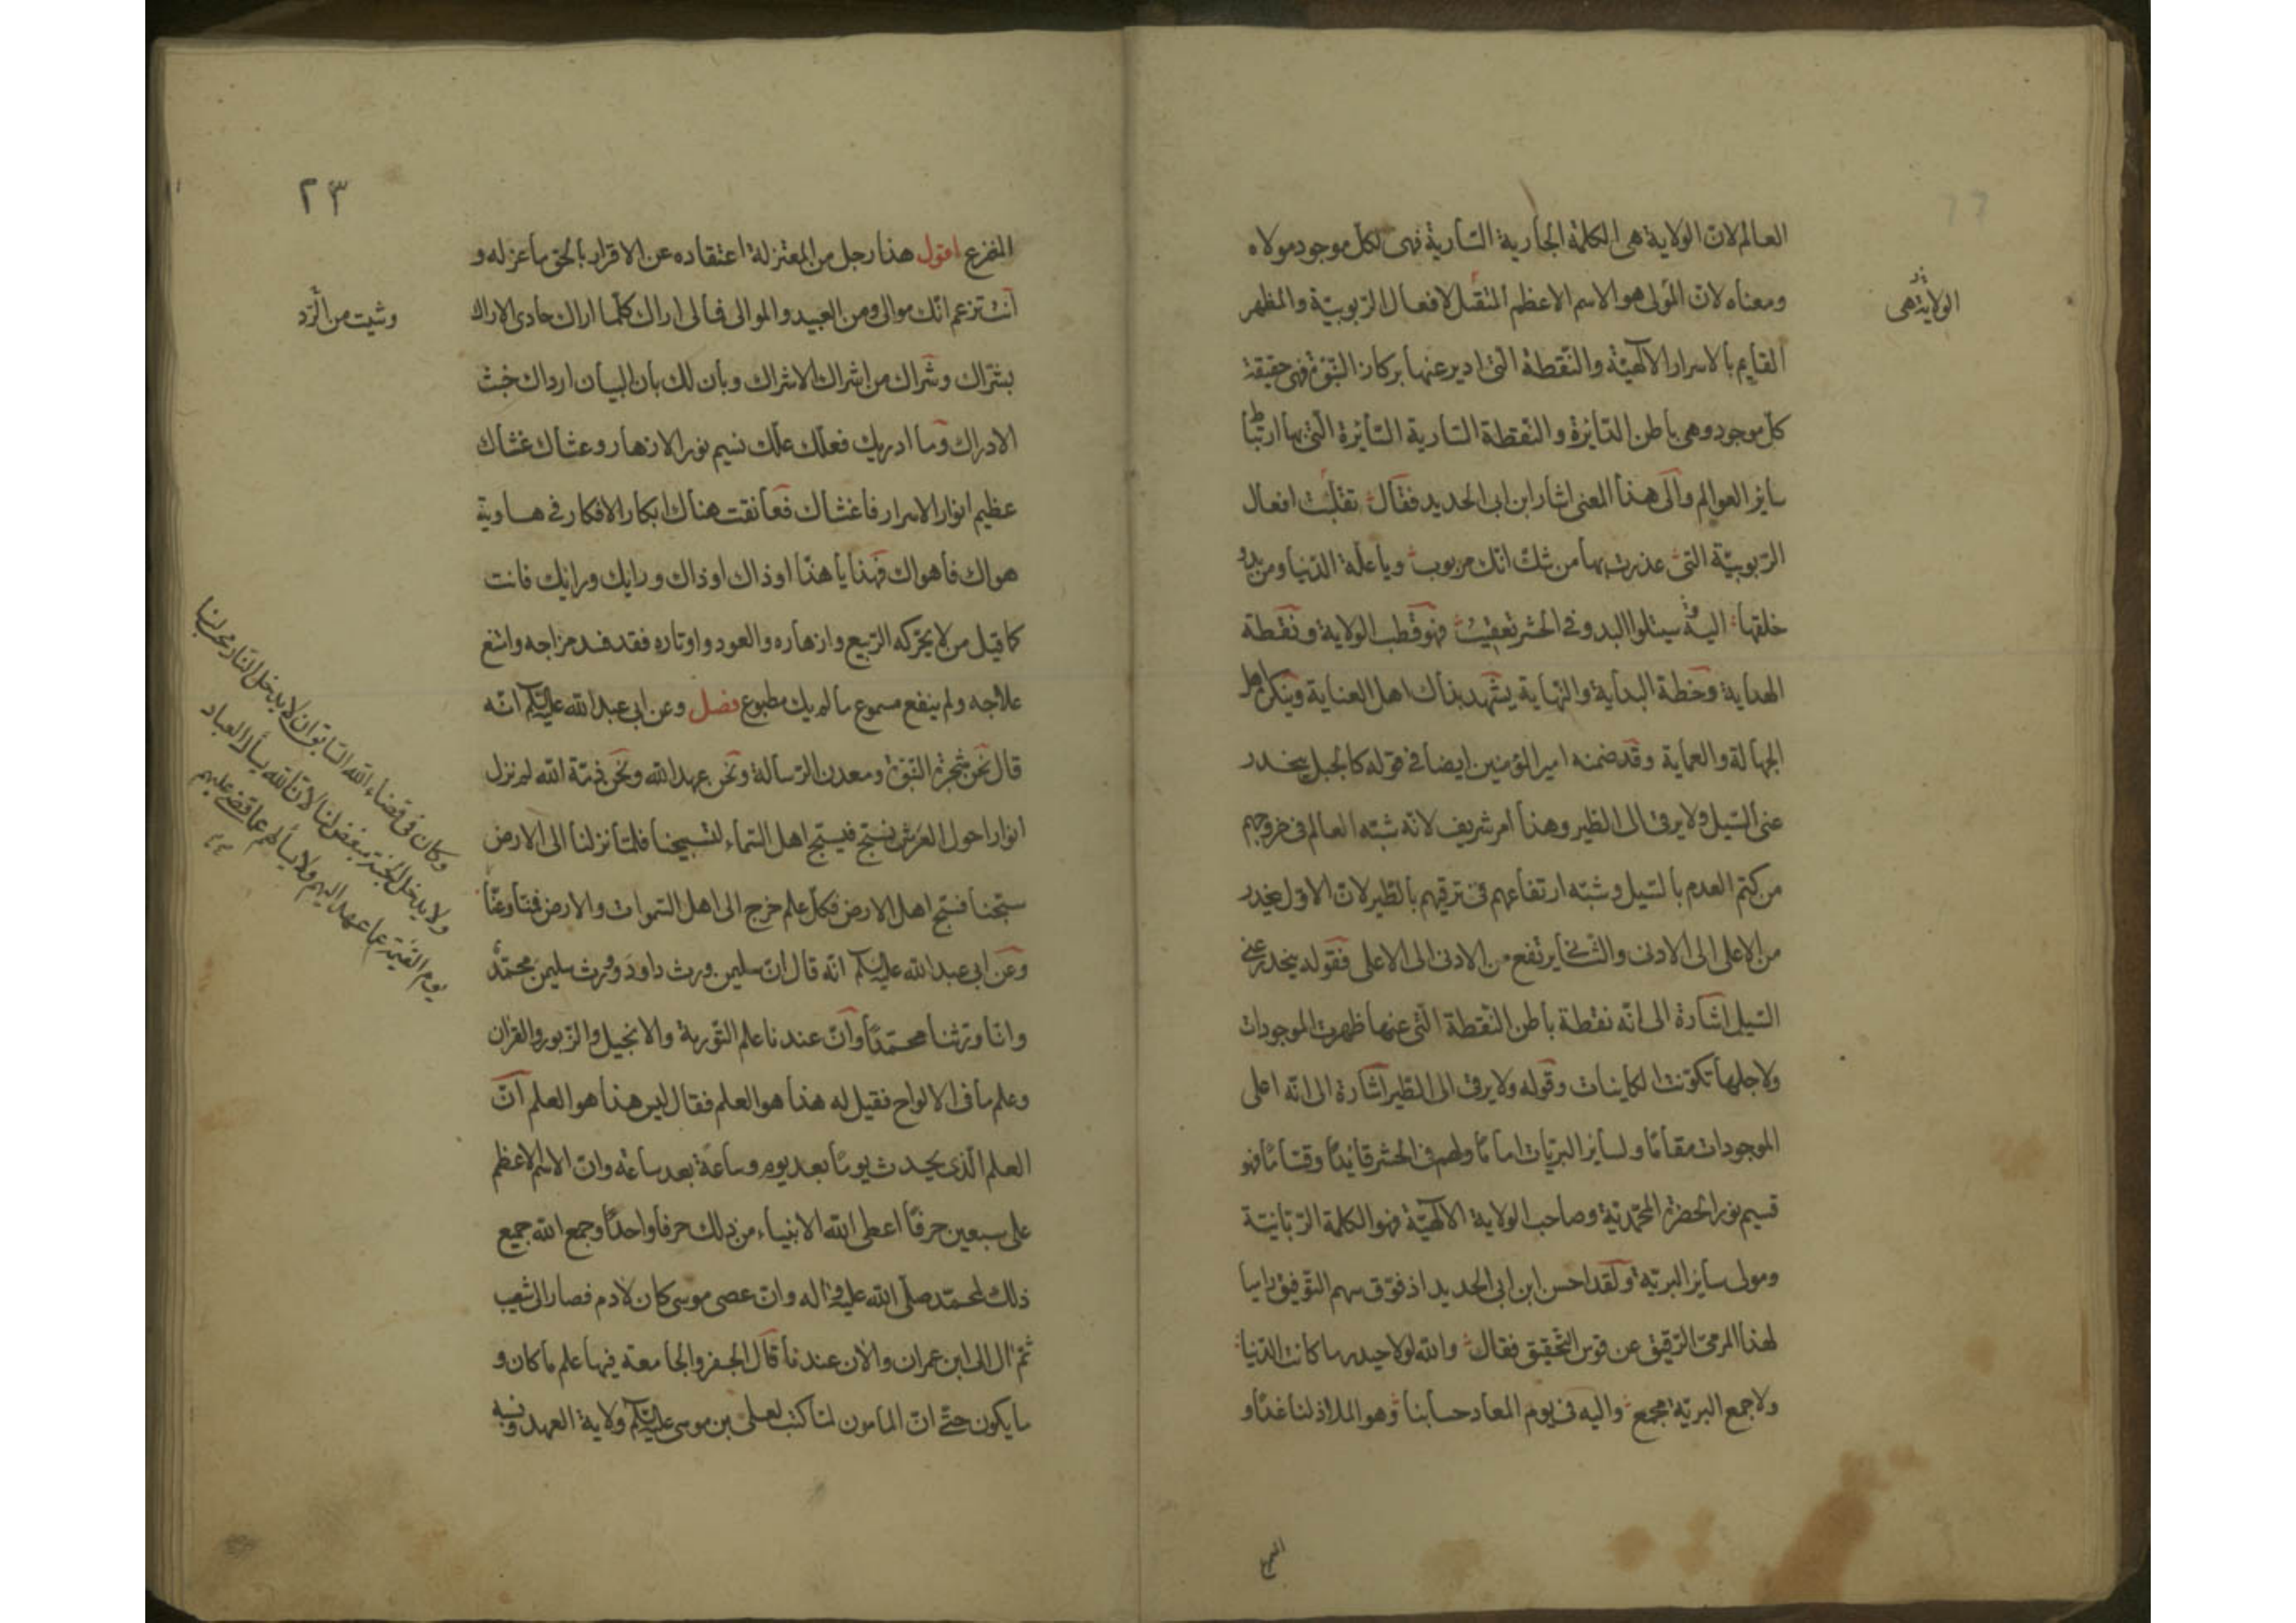 العالم لان الولاية هى الكلمة الجارية السارية فهى لكل موجود مولاه
الولاية هى
ومعناه لان المولى هو الاسم الاعظم المتقبل لافعال الربوبية والمظهر
القايم بالاسرار الالهية والنقطة التى ادير عنها بركار النبوة فهى حقيقة
كل موجود وهى باطن الدايرة والنقطة السارية السايرة التى بها ارتباط
ساير العوالم والى هذا المعنى اشار ابن ابى الحديد فقال تقبلت افعال
الربوبية التى عذرت بها من شك انك مربوب ويا علة الدنيا ومن بدو
خلقها اليه سيتلوا البدو فى الحشر تعقيب فهو قطب الولاية ونقطة
الهداية وخطة البداية والنهاية يشهد بذاك اهل العناية وينكره اهل
الجهالة والعماية وقد ضمنه امير المؤمنين ايضا فى قوله كالجبل ينحدر
عنى السيل ولا يرقى الى الطير وهذا امر شريف لانه شبه العالم فى خروجهم
من كتم العدم بالسيل وشبه ارتفاعهم فى ترقيهم بالطير لان الاول ينحدر
من الاعلى الى الادنى والثانى يرتفع من الادنى الى الاعلى فقوله ينحدر عنى
السيل اشارة الى انه نقطة باطن النقطة التى عنها ظهرت الموجودات
ولاجلها تكونت الكاينات وقوله ولا يرقى الى الطير اشارة الى انه اعلى
الموجودات مقاما ولساير البريات اماما ولهم فى الحشر قايدا وقساما فهو
قسيم نور الحضرة المحمدية وصاحب الولاية الالهية فهو الكلمة الربانية
ومولى ساير البرية ولقد احسن ابن ابى الحديد اذ فوق سهم التوفيق راميا
لهذا المرمى الرقيق عن قوس التحقيق فقال والله لولا حيدر ما كانت الدنيا
ولا جمع البرية مجمع واليه فى يوم المعاد حسابنا وهو الملاذ لنا غدا و
المفزع
٢٣
المفزع اقول هذا رجل من المعتزلة اعتقاده عن الاقرار بالحق ما عزله و
انت تزعم انك موالى ومن العبيد والموالى فمالى اراك كلما اراك حادى الاراك
وشيت من الرد
بشراك وشراك من اشراك الاشراك وبان لك بان البيان ارداك خبث
الادراك وما ادريك فعلك علك نسيم نور الازهار وعشاك غشاك
عظيم انوار الاسرار فاغشاك فعانقت هناك ابكار الافكار فى هاوية
هواك فاهواك فهذا يا هذا اوذاك اوذاك ورايك ورايك فانت
كما قيل من لا يحركه الربيع وازهاره والعود واوتاره فقد فسد مزاجه وامتنع
علاجه ولم ينفع مسموع ما لم يك مطبوع فصل وعن ابى عبدالله عليه السلام انه
قال نحن شجرة النبوة ومعدن الرسالة ونحن عهد الله ونحن ذمة الله لم نزل
انوارا حول العرش نسبح فيسبح اهل السماء لتسبيحنا فلما نزلنا الى الارض
سبحنا فسبح اهل الارض فكل علم خرج الى اهل السموات والارض فمنا وعنا
وكان فى قضاء الله السابق ان لا يدخل النار محب لنا
ولا يدخل الجنة مبغض لنا لان الله يسأل العباد
يوم القيمة عما عهد اليهم ولا يسألهم عما قضى عليهم
وعن ابى عبدالله عليه السلام انه قال ان سليمن ورث داود وورث سليمن محمد
وانا ورثنا محمدا وان عندنا علم التورية والانجيل والزبور والقران
وعلم ما فى الالواح فقيل له هذا هو العلم فقال ليس هذا هو العلم ان
العلم الذى يحدث يوما بعد يوم وساعة بعد ساعة وان الاسم الاعظم
على سبعين حرفا اعطى الله الانبياء من ذلك حرفا واحدا وجمع الله جميع
ذلك لمحمد صلى الله عليه واله وان عصى موسى كان لادم فصار الى شعيب
ثم ال الى ابن عمران والان عندنا قال الجفر والجامعة فيها علم ما كان و
ما يكون حتى ان المامون لما كتب لعلى بن موسى عليه السلام ولاية العهد